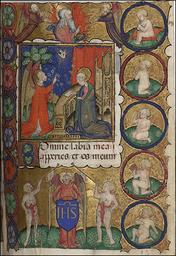 Domine labia mea
apperies et os meum
IHS